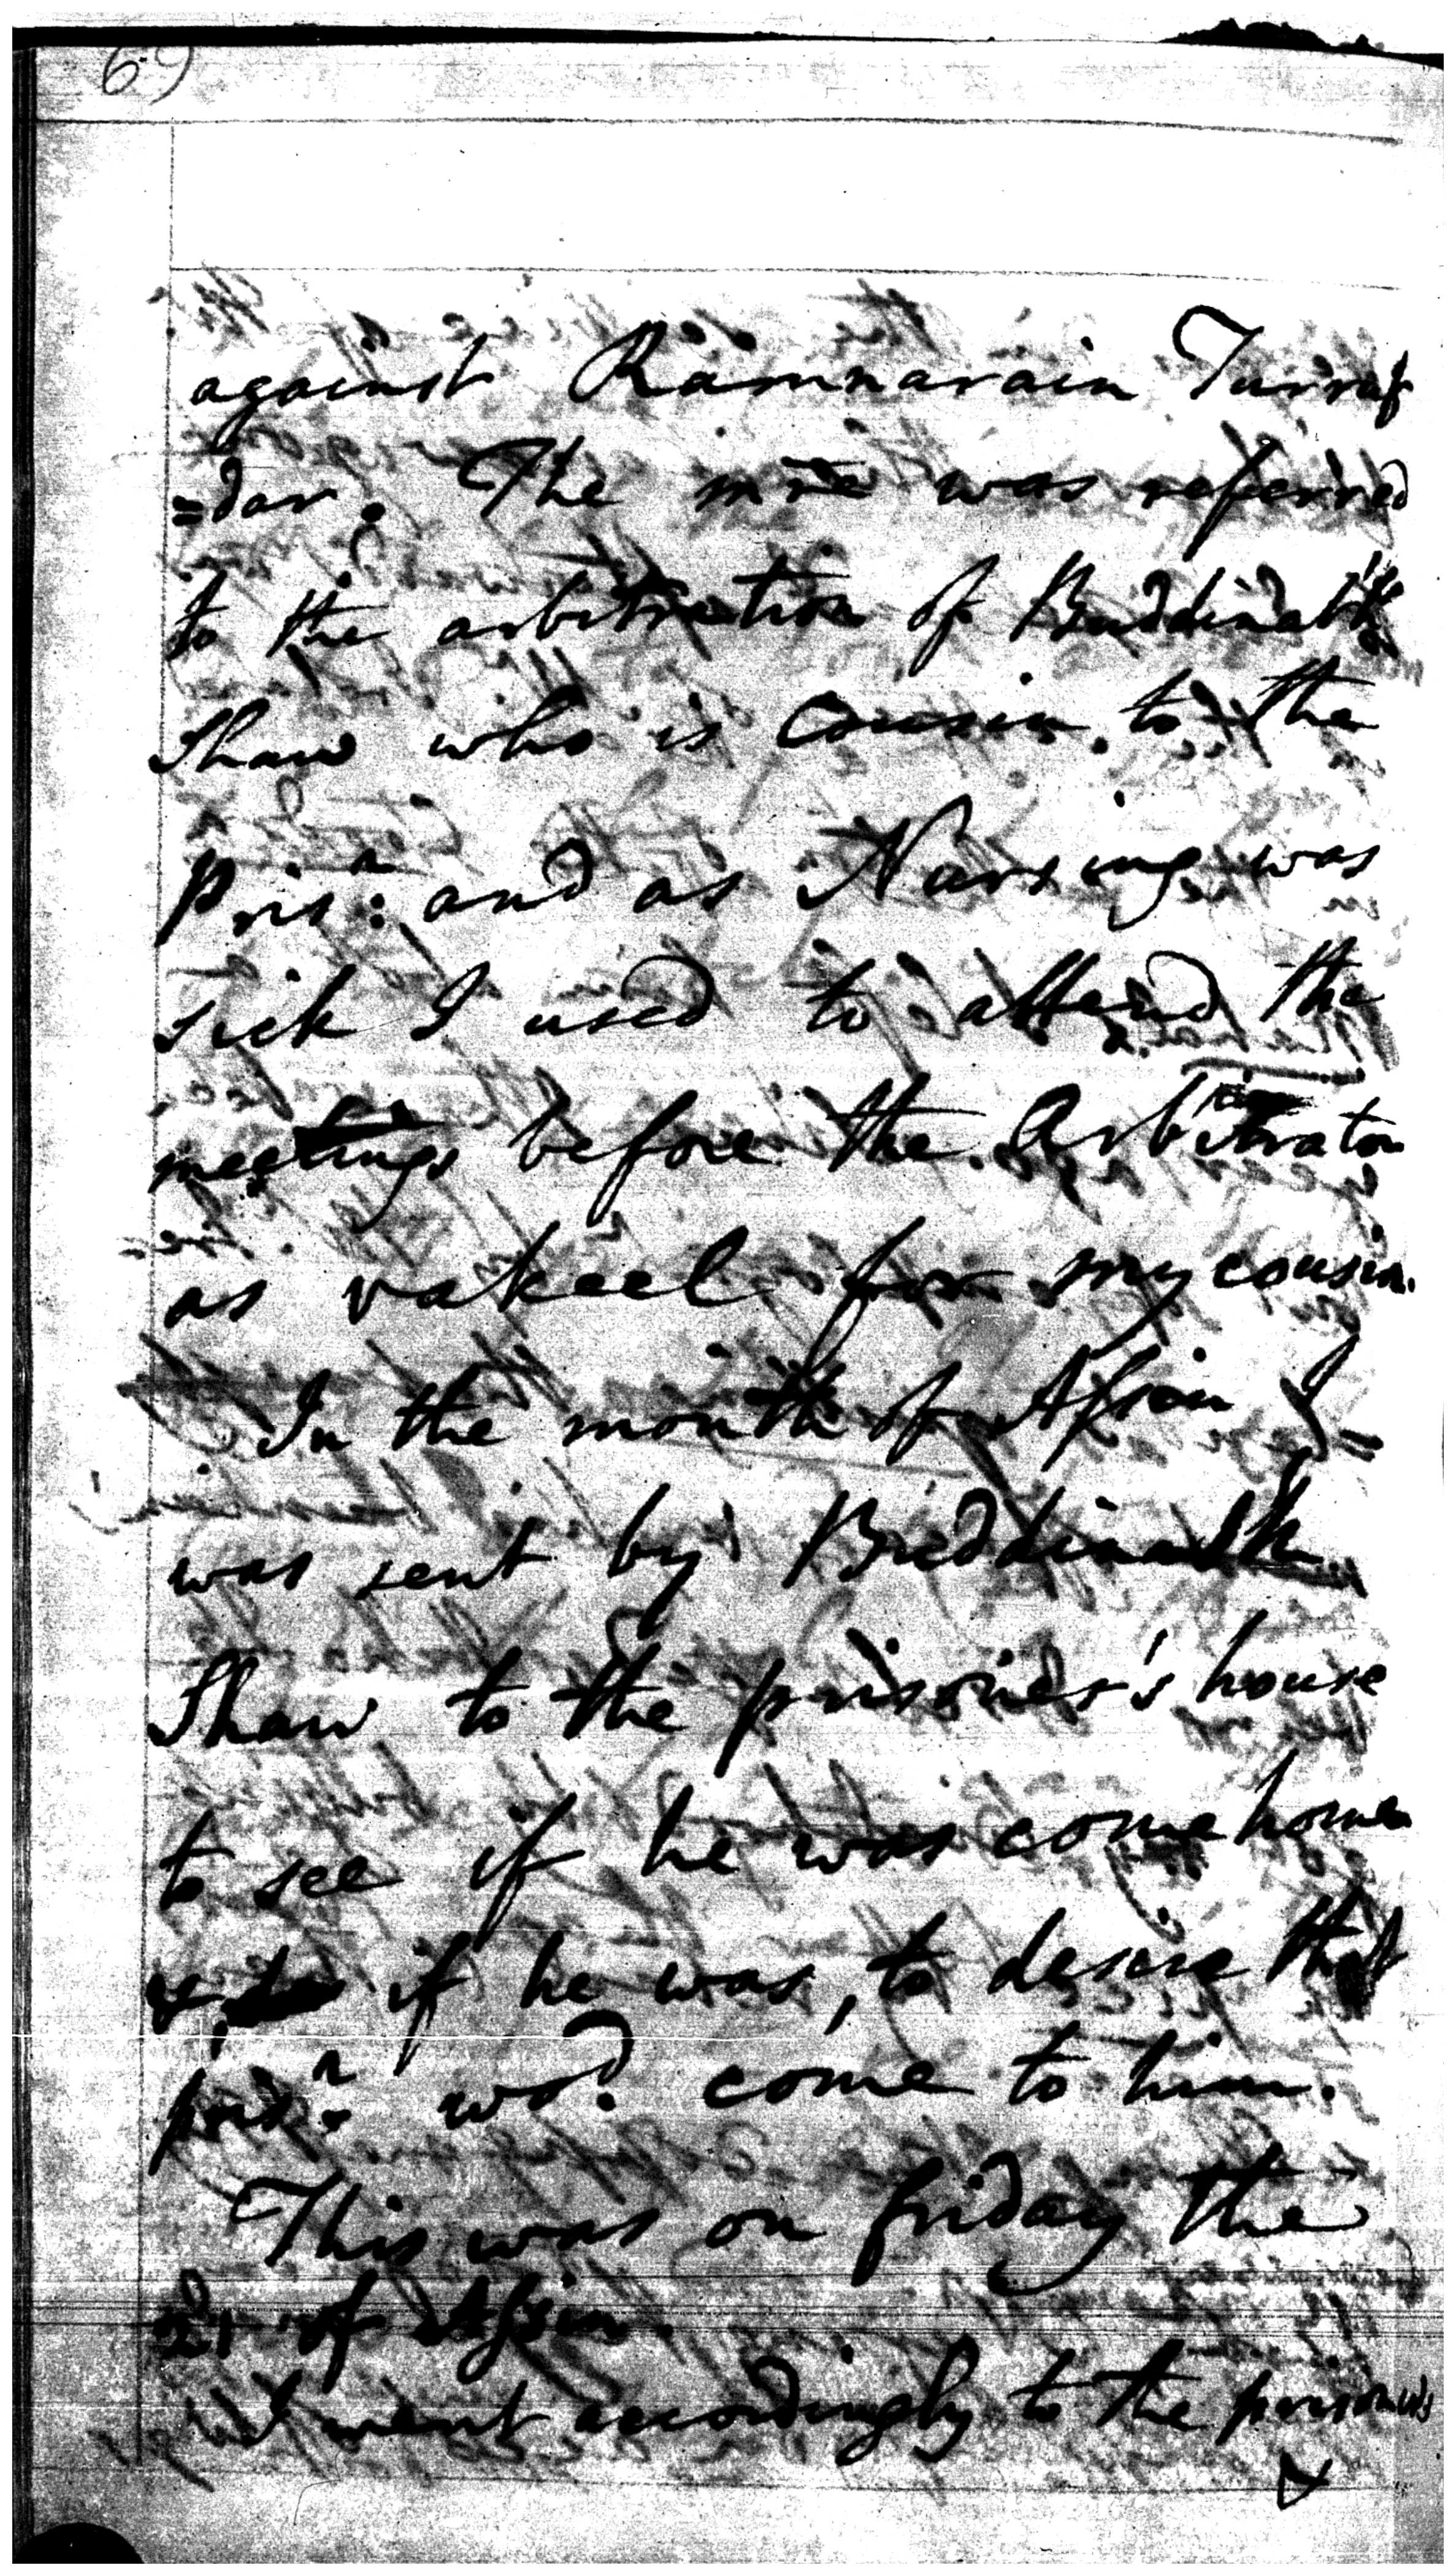 69
against Ramnarain Turraf
=dar. The mre was referred
to the arbitration of Buddinath
Shaw who is Cousin to the
Prisn: and as Narsing was
sick I used to attend the
meetings before the Arbitrator
as vakeel for my cousin.
In the month of Assin I
was sent by Buddinath
Shaw to the prisoner's house
to see if he was come home
& if he was, to desire that
prisn. wod. come to him.
This was on friday the
21 of Assin.
I went accordingly to the prisoner's